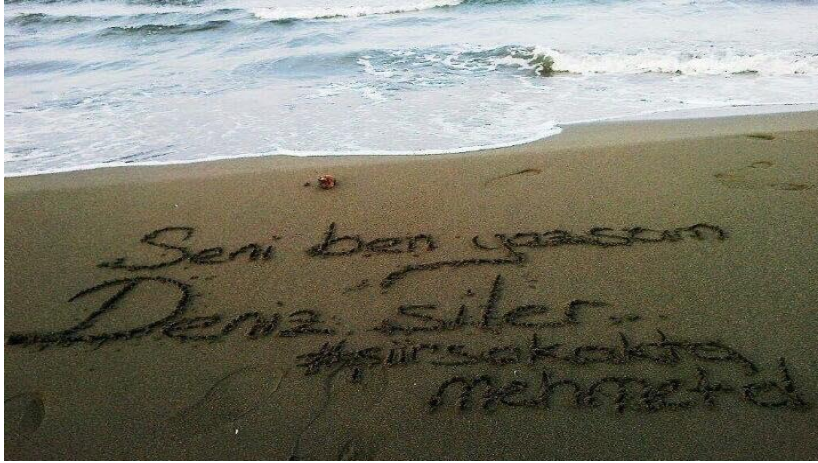 Seni ben yazsam
Deniz siler..
#şiirsokakta
mehmetd